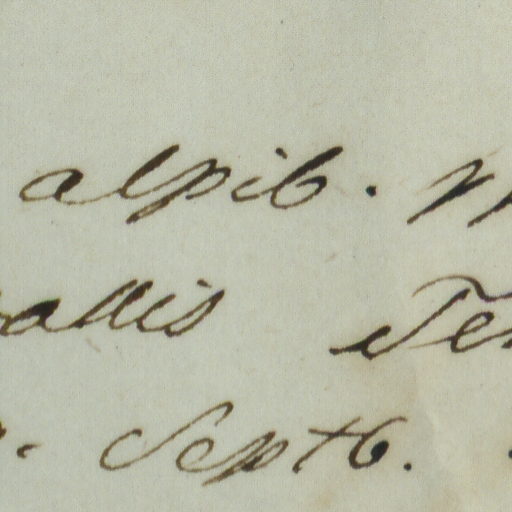 alpib.
allis Te
Septb.